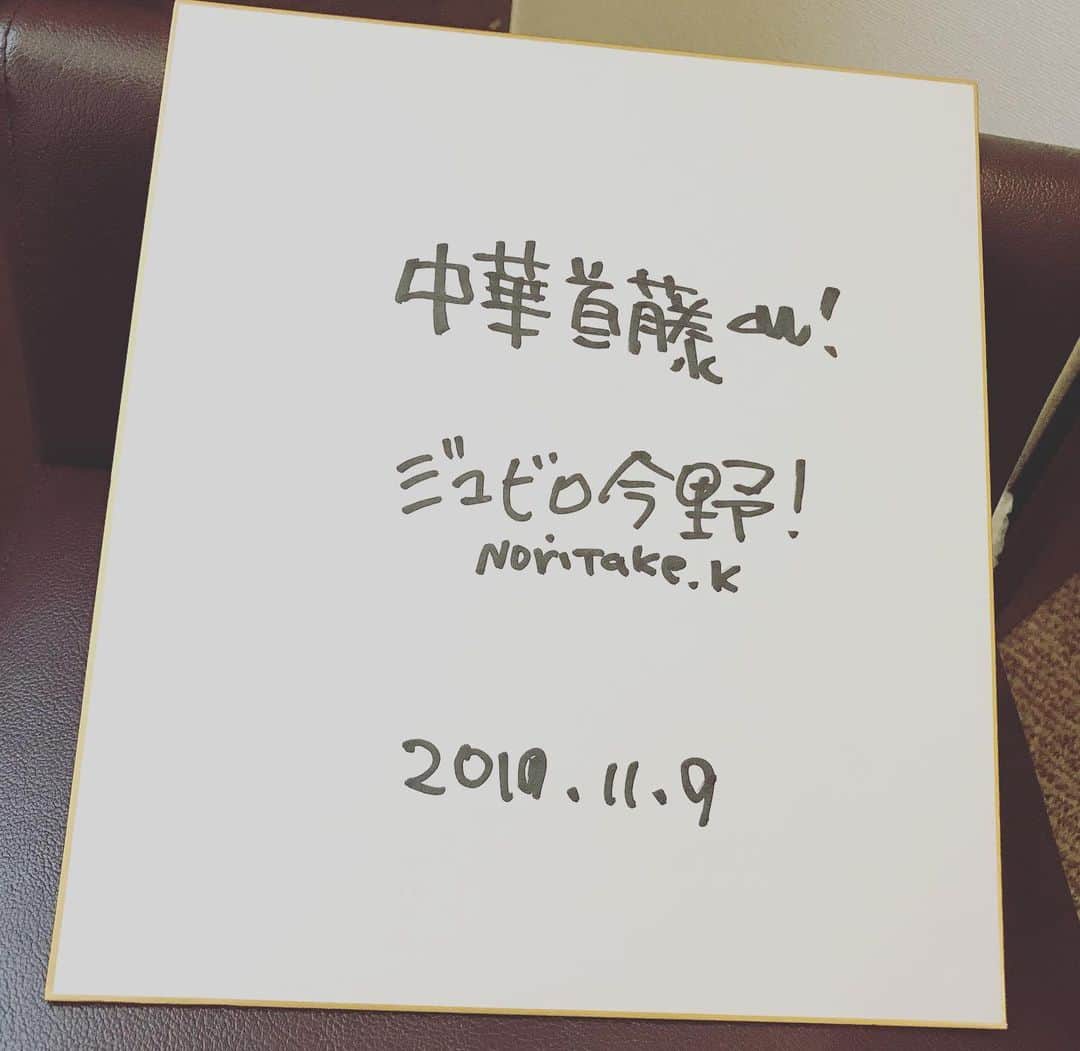 中華首藤さん!
ジュビロ今野!
NoriTake.K
2019.11.9